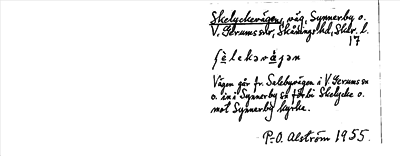 Skelyckevägen, väg, Synnerby o.
V. Gerums snr, Skånings hd, Skar. l.
17
Vägen går fr. Salebyvägen i V. Gerums sn
o. in i Synnerby sn förbi Skelycke o.
mot Synnerby kyrka.
P.-O. Alström 1955.